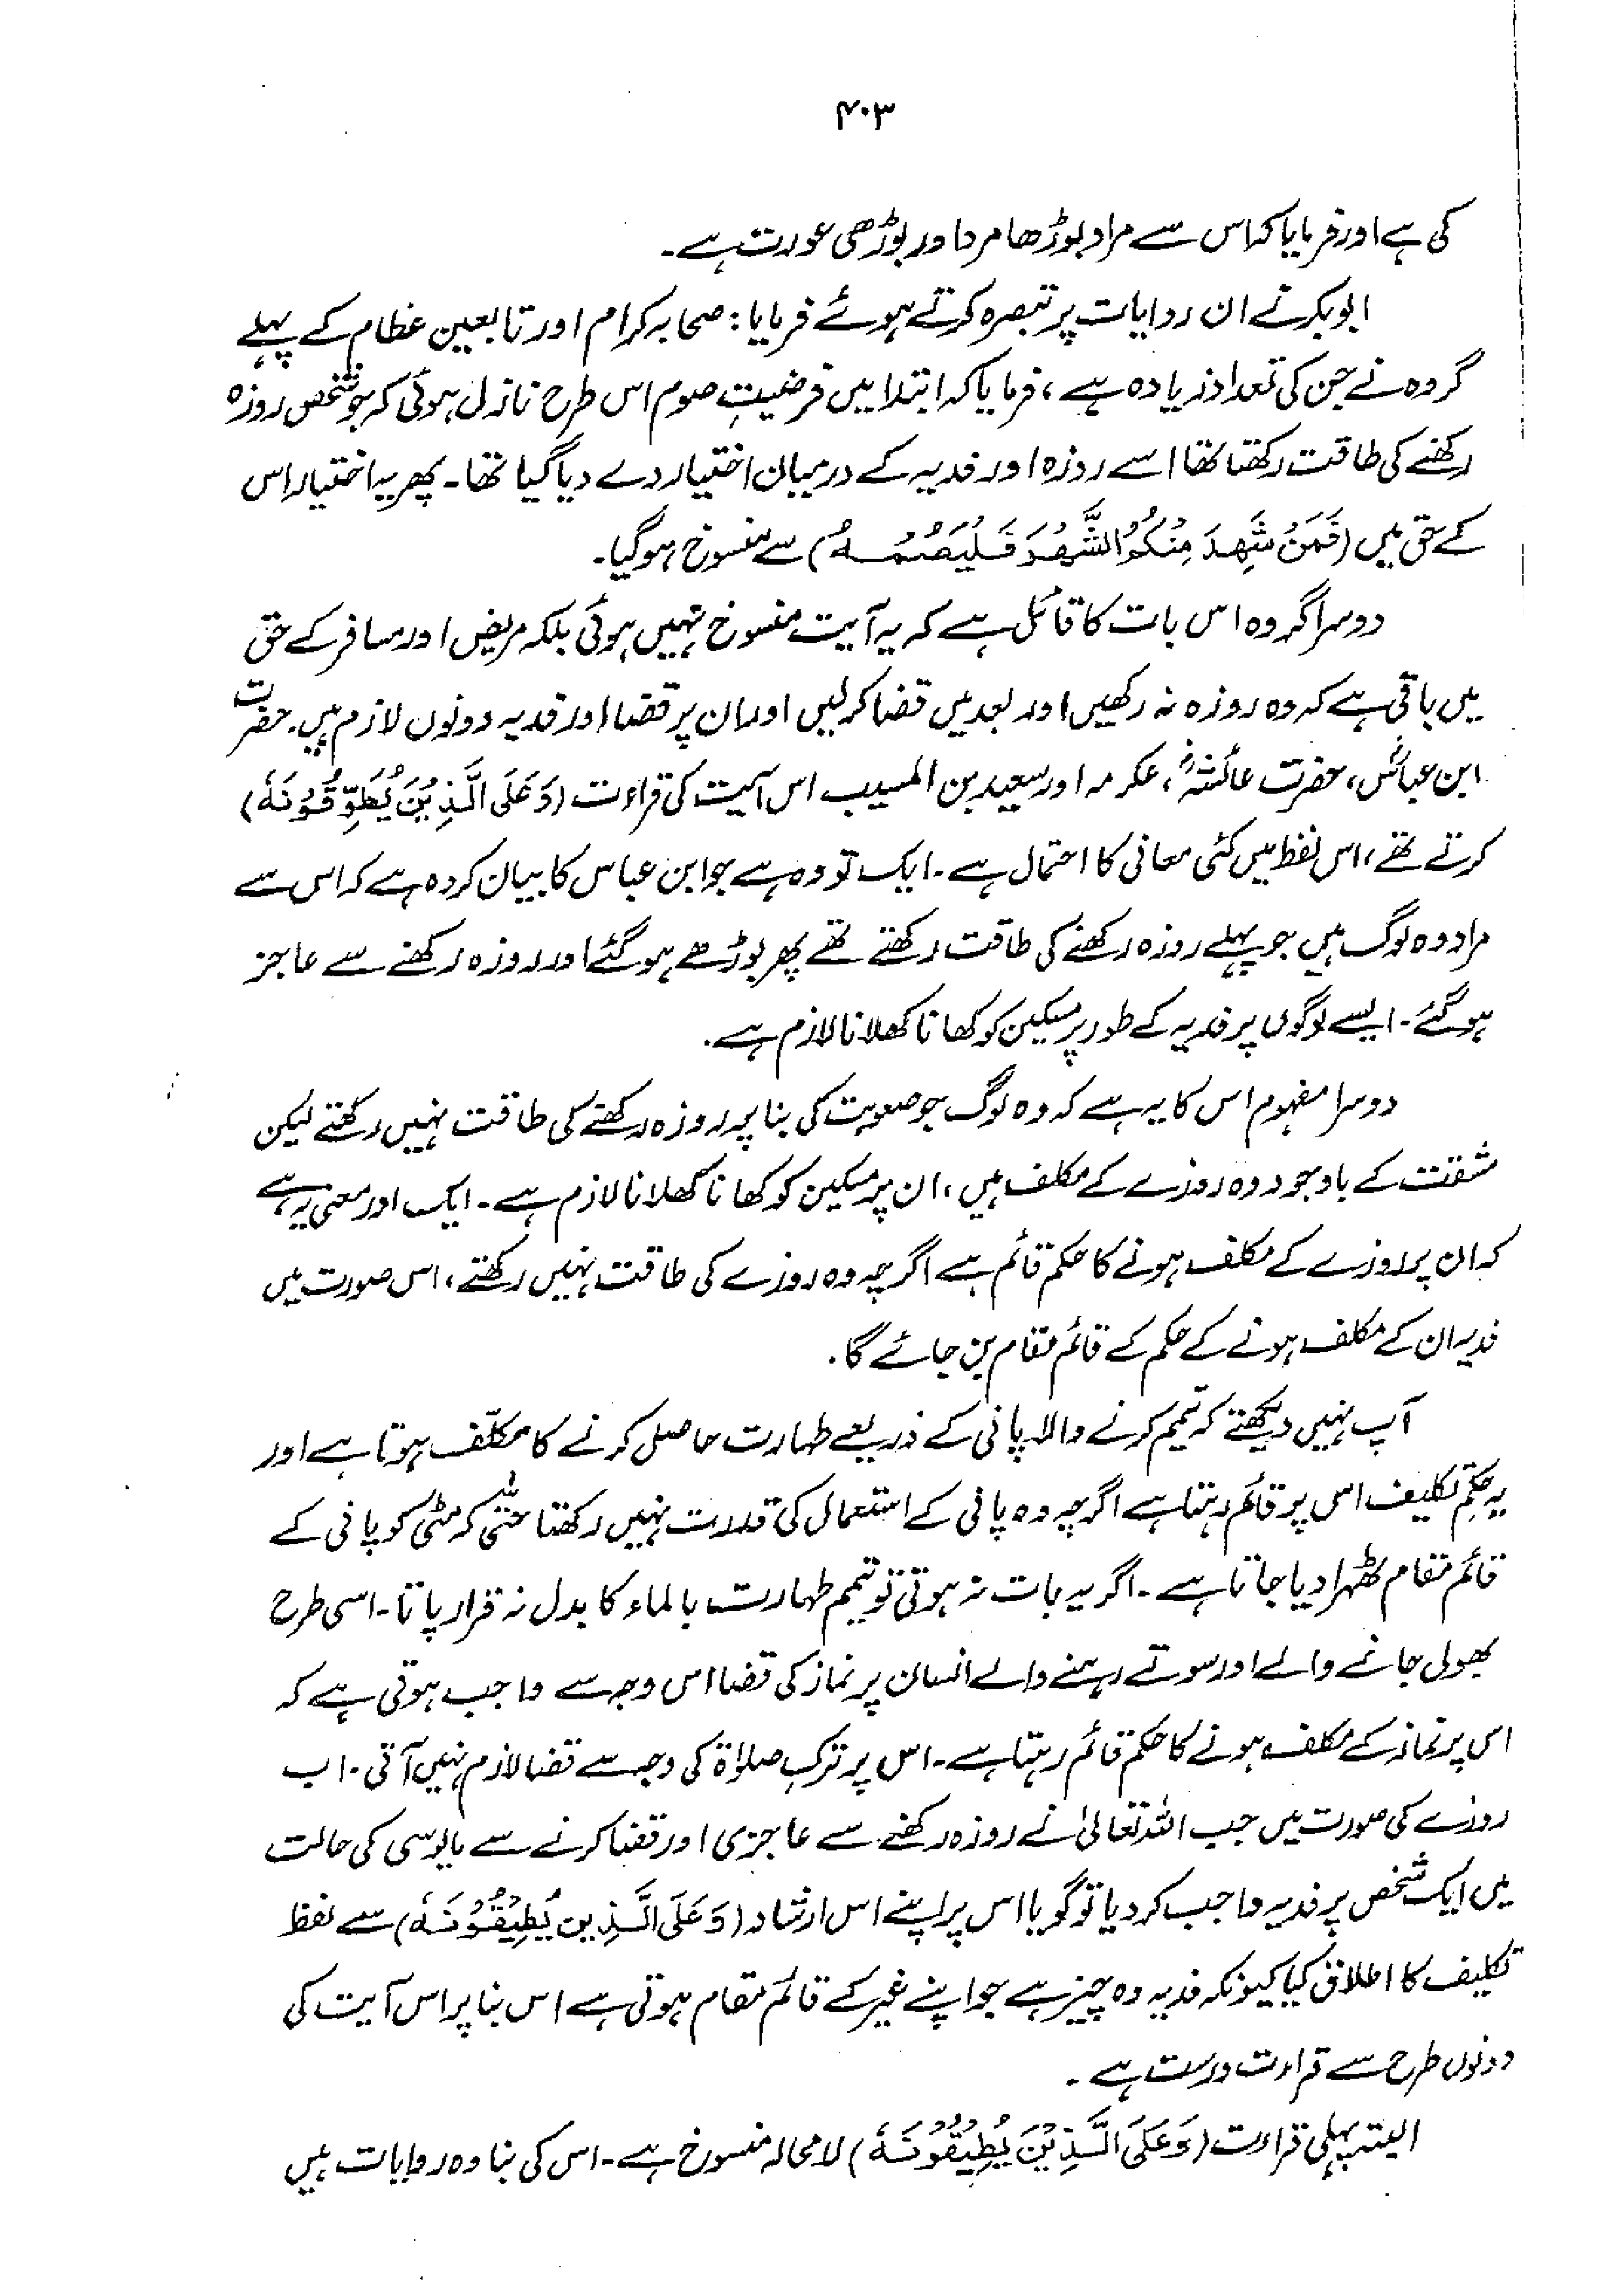 ۴۰۳
کی ہے اور فرمایا کہ اس سے مراد بوڑھا مرد اور بوڑھی عورت ہے۔
ابوبکر نے ان روایات پر تبصرہ کرتے ہوئے فرمایا: صحابہ کرام اور تابعین عظام کے پہلے
گروہ نے جن کی تعداد زیادہ ہے، فرمایا کہ ابتدا میں فرضیتِ صوم اس طرح نازل ہوئی کہ جو شخص روزہ
رکھنے کی طاقت رکھتا تھا اسے روزہ اور فدیہ کے درمیان اختیار دے دیا گیا تھا۔ پھر یہ اختیار اس
کے حق میں (فَمَنْ شَهِدَ مِنْكُمُ الشَّهْرَ فَلْيَصُمْهُ) سے منسوخ ہوگیا۔
دوسرا گروہ اس بات کا قائل ہے کہ یہ آیت منسوخ نہیں ہوئی بلکہ مریض اور مسافر کے حق
میں باقی ہے کہ وہ روزہ نہ رکھیں اور بعد میں قضا کرلیں اور ان پر قضا اور فدیہ دونوں لازم ہیں۔ حضرت
ابن عباسؓ، حضرت عائشہؓ، عکرمہ اور سعید بن المسیب اس آیت کی قراءت (وَعَلَى الَّذِيْنَ يُطَوَّقُوْنَهٗ)
کرتے تھے، اس لفظ میں کئی معانی کا احتمال ہے۔ ایک تو وہ ہے جو ابن عباس کا بیان کردہ ہے کہ اس سے
مراد وہ لوگ ہیں جو پہلے روزہ رکھنے کی طاقت رکھتے تھے پھر بوڑھے ہوگئے اور روزہ رکھنے سے عاجز
ہوگئے۔ ایسے لوگوں پر فدیہ کے طور پر مسکین کو کھانا کھلانا لازم ہے۔
دوسرا مفہوم اس کا یہ ہے کہ وہ لوگ جو صعوبت کی بنا پر روزہ رکھنے کی طاقت نہیں رکھتے لیکن
مشقت کے باوجود وہ روزے کے مکلف ہیں، ان پر مسکین کو کھانا کھلانا لازم ہے۔ ایک اور معنی یہ ہے
کہ ان پر روزے کے مکلف ہونے کا حکم قائم ہے اگرچہ وہ روزے کی طاقت نہیں رکھتے، اس صورت میں
فدیہ ان کے مکلف ہونے کے حکم کے قائم مقام بن جائے گا۔
آپ نہیں دیکھتے کہ تیمم کرنے والا پانی کے ذریعے طہارت حاصل کرنے کا مکلّف ہوتا ہے اور
یہ حکمِ تکلیف اس پر قائم رہتا ہے اگرچہ وہ پانی کے استعمال کی قدرت نہیں رکھتا حتیٰ کہ مٹی کو پانی کے
قائم مقام ٹھہرا دیا جاتا ہے۔ اگر یہ بات نہ ہوتی تو تیمم طہارت بالماء کا بدل نہ قرار پاتا۔ اسی طرح
بھول جانے والے اور سوتے رہنے والے انسان پر نماز کی قضا اس وجہ سے واجب ہوتی ہے کہ
اس پر نماز کے مکلف ہونے کا حکم قائم رہتا ہے۔ اس پر ترکِ صلوٰۃ کی وجہ سے قضا لازم نہیں آتی۔ اب
روزے کی صورت میں جب اللہ تعالیٰ نے روزہ رکھنے سے عاجزی اور قضا کرنے سے مایوسی کی حالت
میں ایک شخص پر فدیہ واجب کردیا تو گویا اس پر اپنے اس ارشاد (وَعَلَى الَّذِين يُطِيْقُوْنَهٗ) سے لفظ
تکلیف کا اطلاق کیا کیونکہ فدیہ وہ چیز ہے جو اپنے غیر کے قائم مقام ہوتی ہے اس بنا پر اس آیت کی
دونوں طرح سے قراءت درست ہے۔
البتہ پہلی قراءت (وَعَلَى الَّذِيْنَ يُطِيْقُوْنَهٗ) لامحالہ منسوخ ہے۔ اس کی بنا وہ روایات ہیں